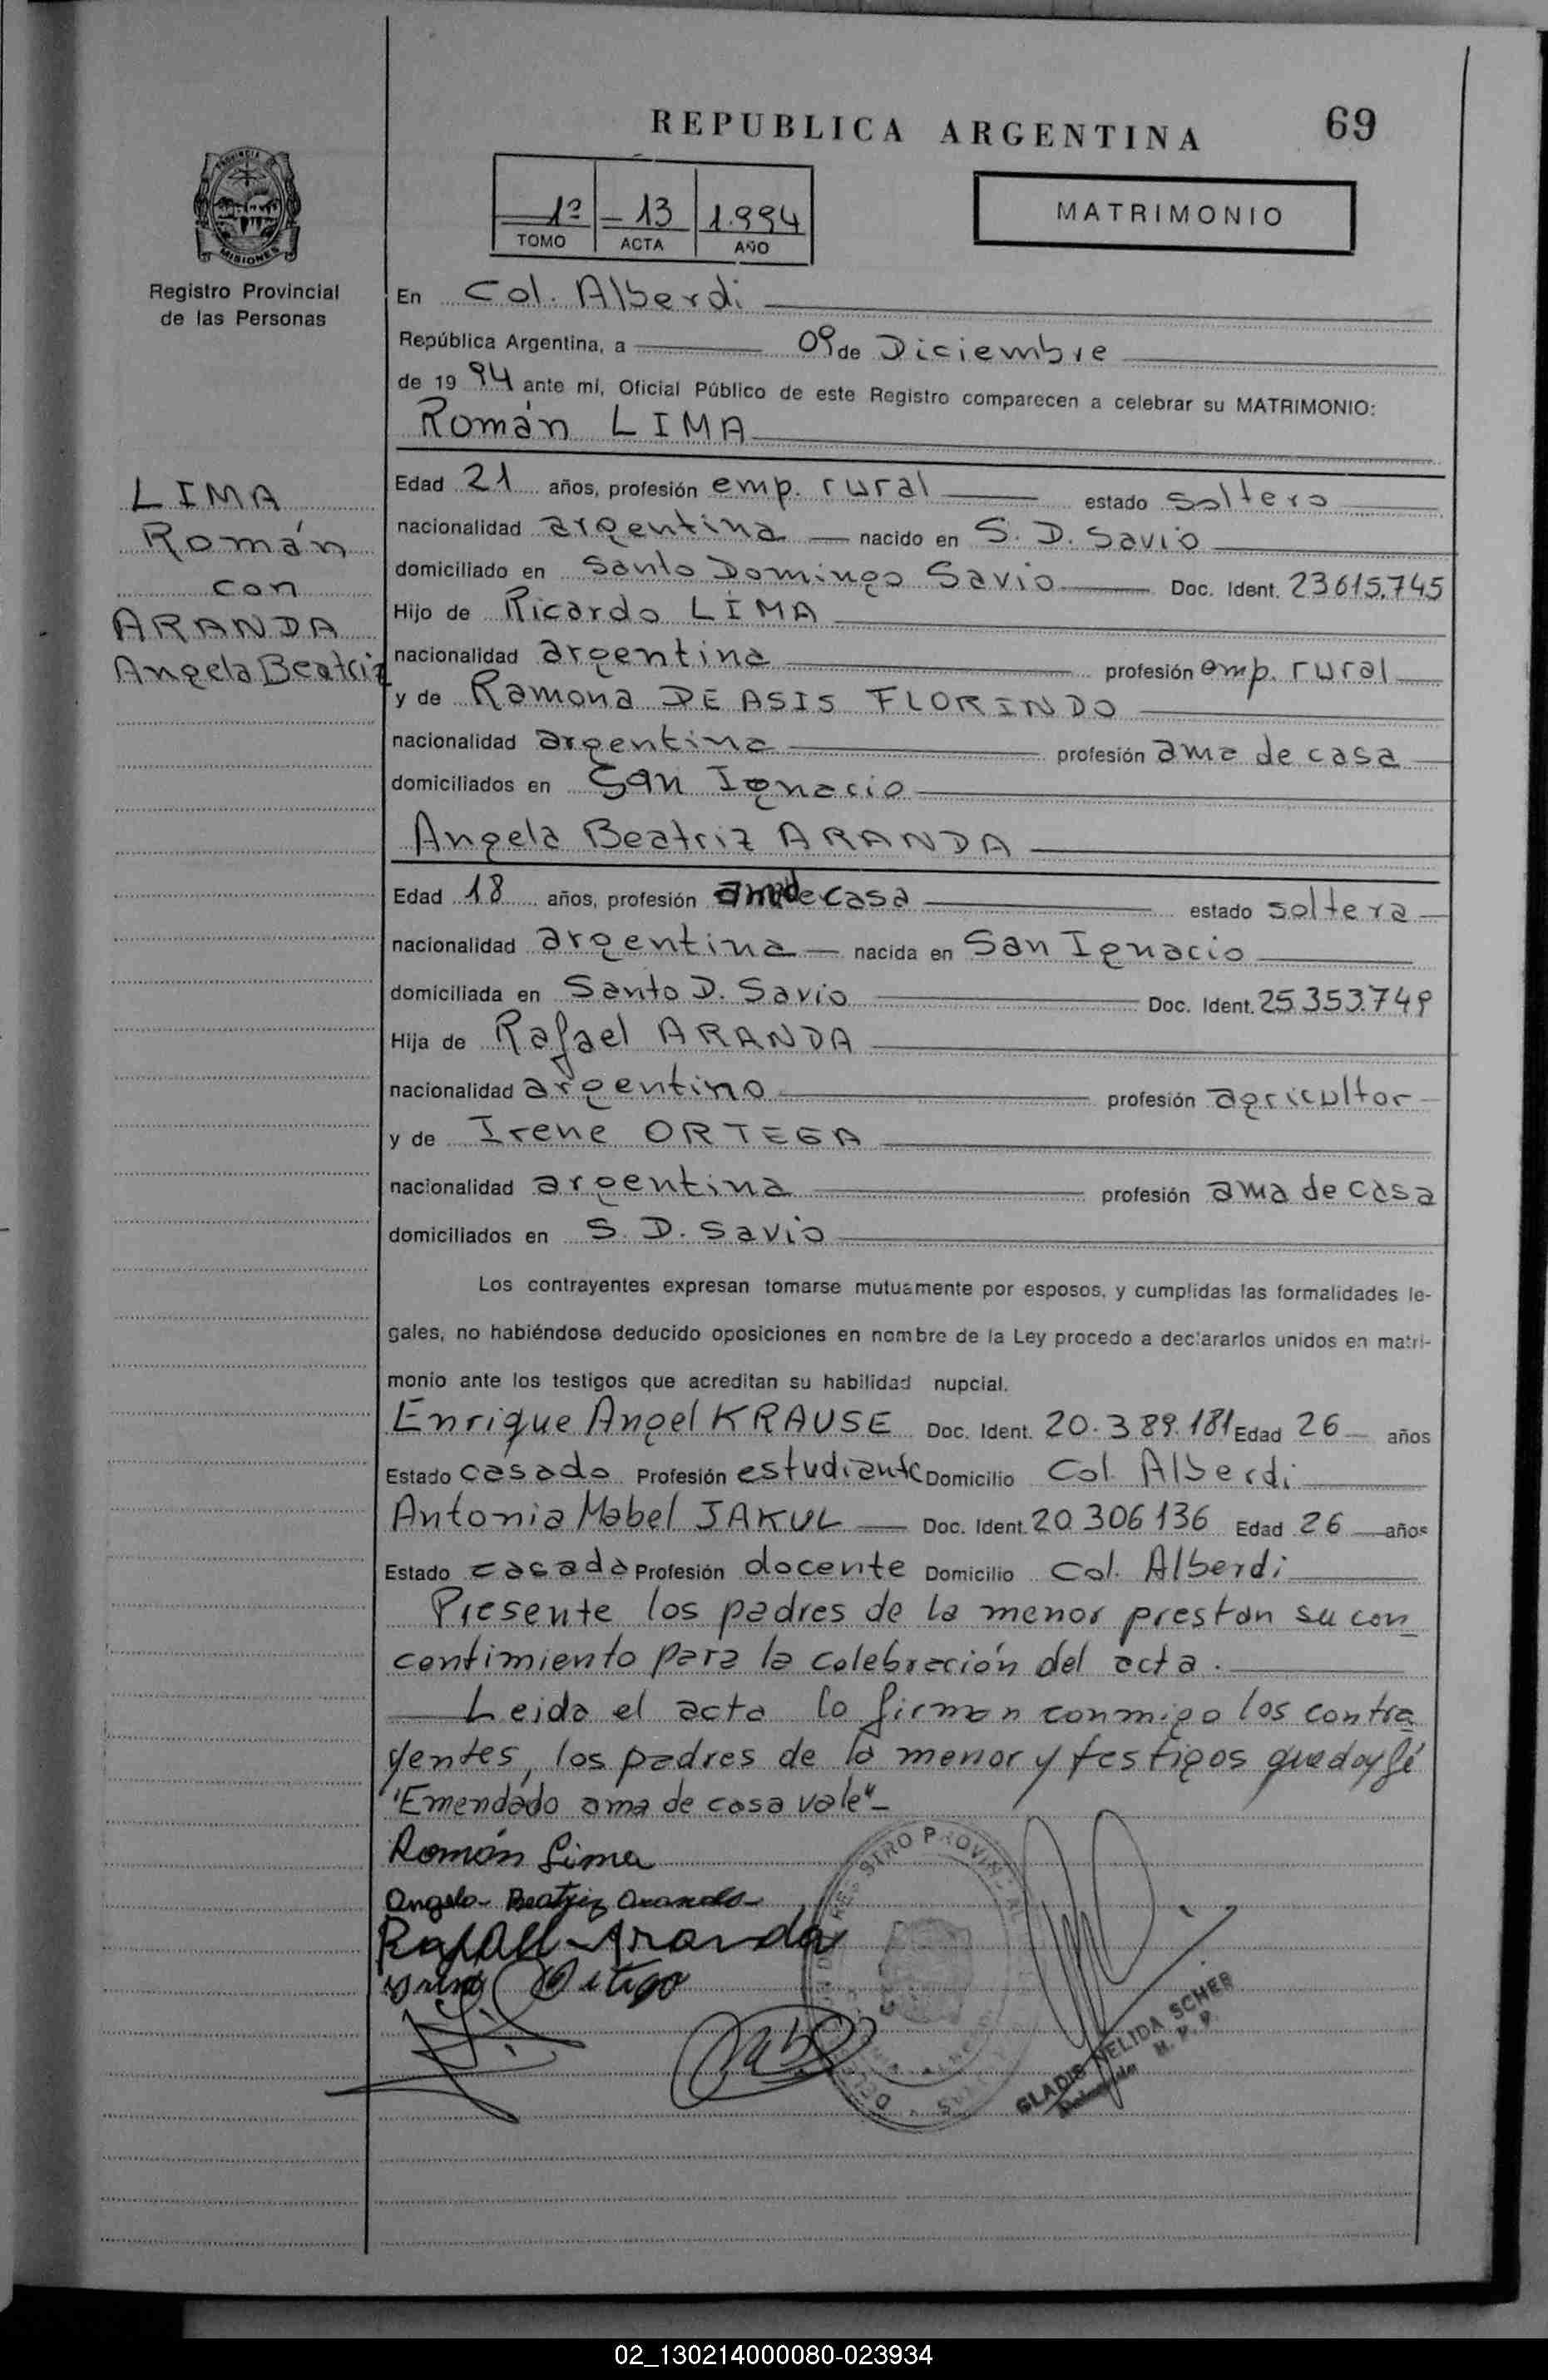 REPUBLICA ARGENTINA
69
1º
13
1.994
TOMO
ACTA
AÑO
MATRIMONIO
PROVINCIA DE
MISIONES
Registro Provincial
de las Personas
LIMA
Román
con
ARANDA
Angela Beatriz
En Col. Alberdi
República Argentina, a 09 de Diciembre
de 19 94 ante mí, Oficial Público de este Registro comparecen a celebrar su MATRIMONIO:
Román LIMA
Edad 21 años, profesión emp. rural estado soltero
nacionalidad argentina nacido en S. D. Savio
domiciliado en Santo Domingo Savio Doc. Ident. 23615.745
Hijo de Ricardo LIMA
nacionalidad argentina profesión emp. rural
y de Ramona DE ASIS FLORINDO
nacionalidad argentina profesión ama de casa
domiciliados en San Ignacio
Angela Beatriz ARANDA
Edad 18 años, profesión ama de casa estado soltera
nacionalidad argentina nacida en San Ignacio
domiciliada en Santo D. Savio Doc. Ident. 25.353.749
Hija de Rafael ARANDA
nacionalidad argentino profesión agricultor
y de Irene ORTEGA
nacionalidad argentina profesión ama de casa
domiciliados en S. D. Savio
Los contrayentes expresan tomarse mutuamente por esposos, y cumplidas las formalidades le-
gales, no habiéndose deducido oposiciones en nombre de la Ley procedo a declararlos unidos en matri-
monio ante los testigos que acreditan su habilidad nupcial.
Enrique Angel KRAUSE Doc. Ident. 20.389.181 Edad 26 años
Estado casado Profesión estudiante Domicilio Col. Alberdi
Antonia Mabel JAKUL Doc. Ident. 20.306136 Edad 26 años
Estado casada Profesión docente Domicilio Col. Alberdi
Presente los padres de la menor prestan su con
centimiento para la celebración del acta.
Leida el acta lo firman conmigo los contra
yentes, los padres de la menor y testigos que doy fé
"Emendado ama de casa vale"-
Román Lima
Angela Beatriz Aranda
Rafael Aranda
GLADIS NELIDA SCHER
02_130214000080-023934